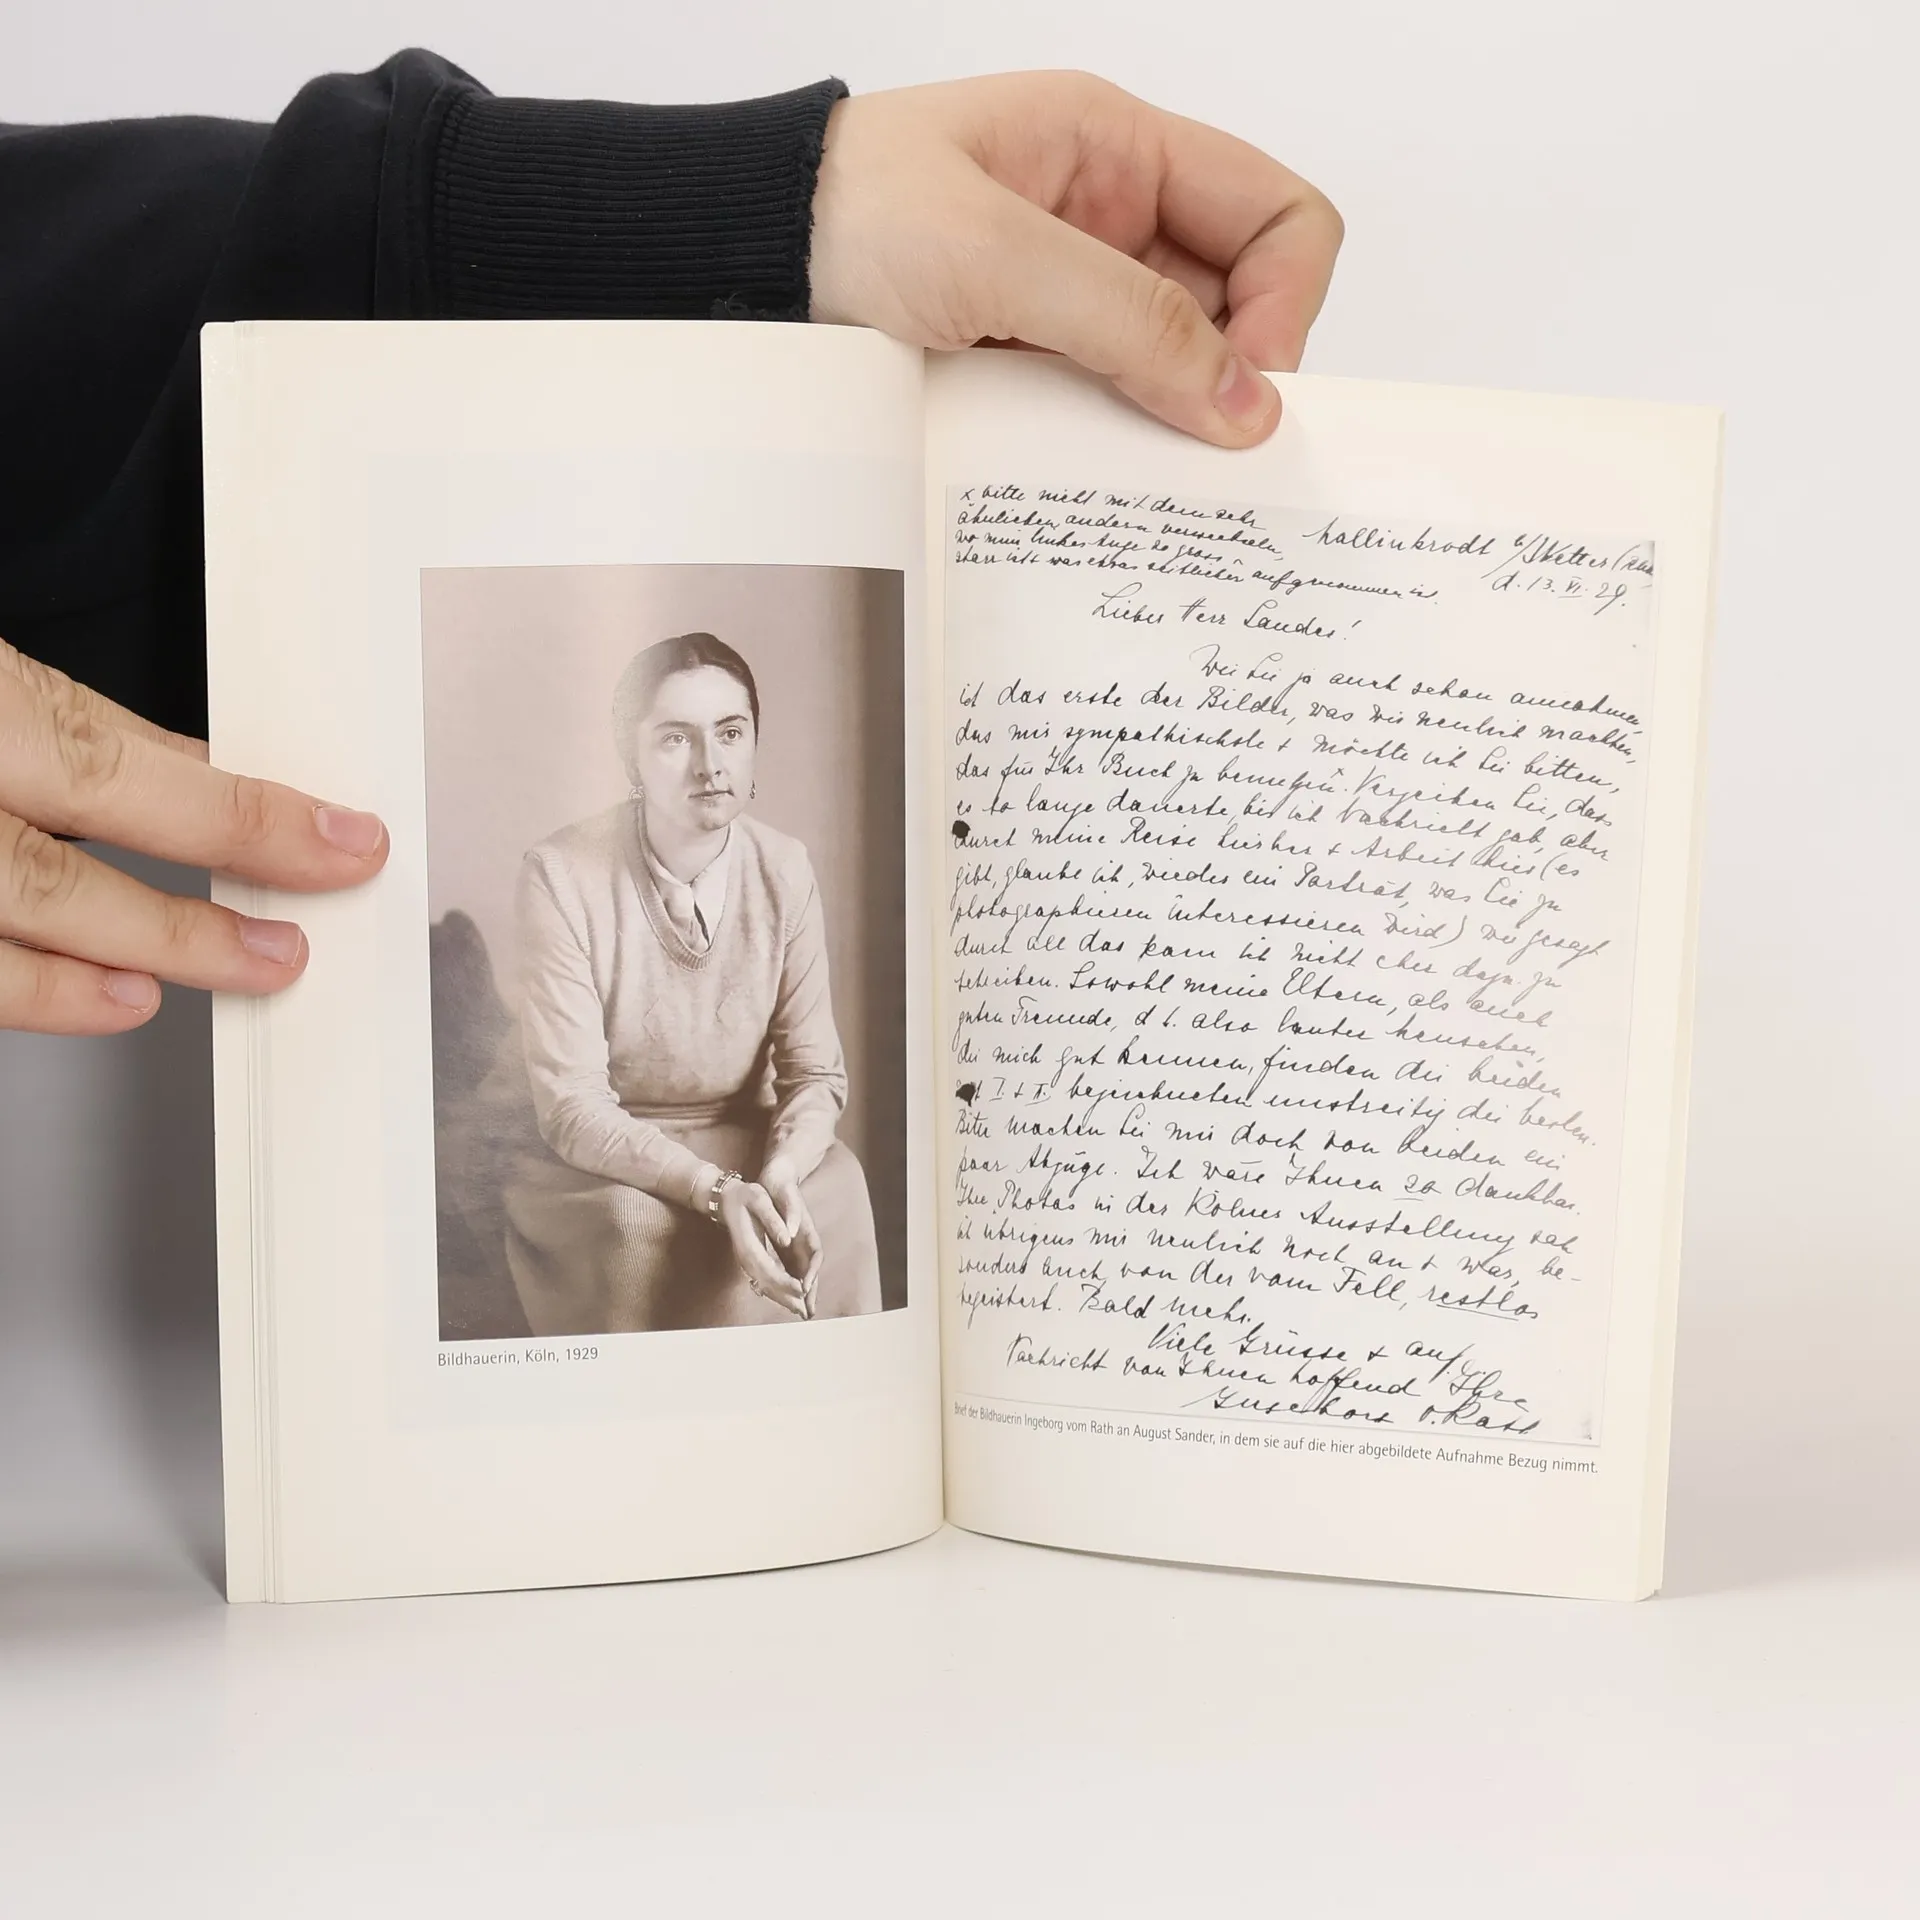 Bildhauerin, Köln, 1929
x bitte nicht mit dem sehr
ähnlichen andern verwechseln,
wo mein linkes Auge so gross
starr ist + was etwas seitlicher aufgenommen ist.
Mallinkrodt b/Wetter (Ruhr)
d. 13. VI. 29.
Lieber Herr Sander!
Wie Sie ja auch schon annahmen,
ist das erste der Bilder, was wir neulich machten,
das mir sympathischste + möchte ich Sie bitten,
das für Ihr Buch zu benutzen. Verzeihen Sie, dass
es so lange dauerte, bis ich Nachricht gab, aber
durch meine Reise hierher + Arbeit hier (es
gibt, glaube ich, wieder ein Porträt, was Sie zu
photographieren interessieren wird) wie gesagt
durch all das kam ich nicht eher dazu zu
schreiben. Sowohl meine Eltern, als auch
guten Freunde, d. h. also lauter Menschen,
die mich gut kennen, finden die beiden
mit I. + II. bezeichneten unstreitig die besten.
Bitte machen Sie mir doch von beiden ein
paar Abzüge. Ich wäre Ihnen so dankbar.
Ihre Photos in der Kölner Ausstellung sah
ich übrigens mir neulich noch an + war, be-
sonders auch von der vom Fell, restlos
begeistert. Bald mehr.
Viele Grüsse + auf
Nachricht von Ihnen hoffend Ihre
Ingeborg v. Rath
Brief der Bildhauerin Ingeborg vom Rath an August Sander, in dem sie auf die hier abgebildete Aufnahme Bezug nimmt.